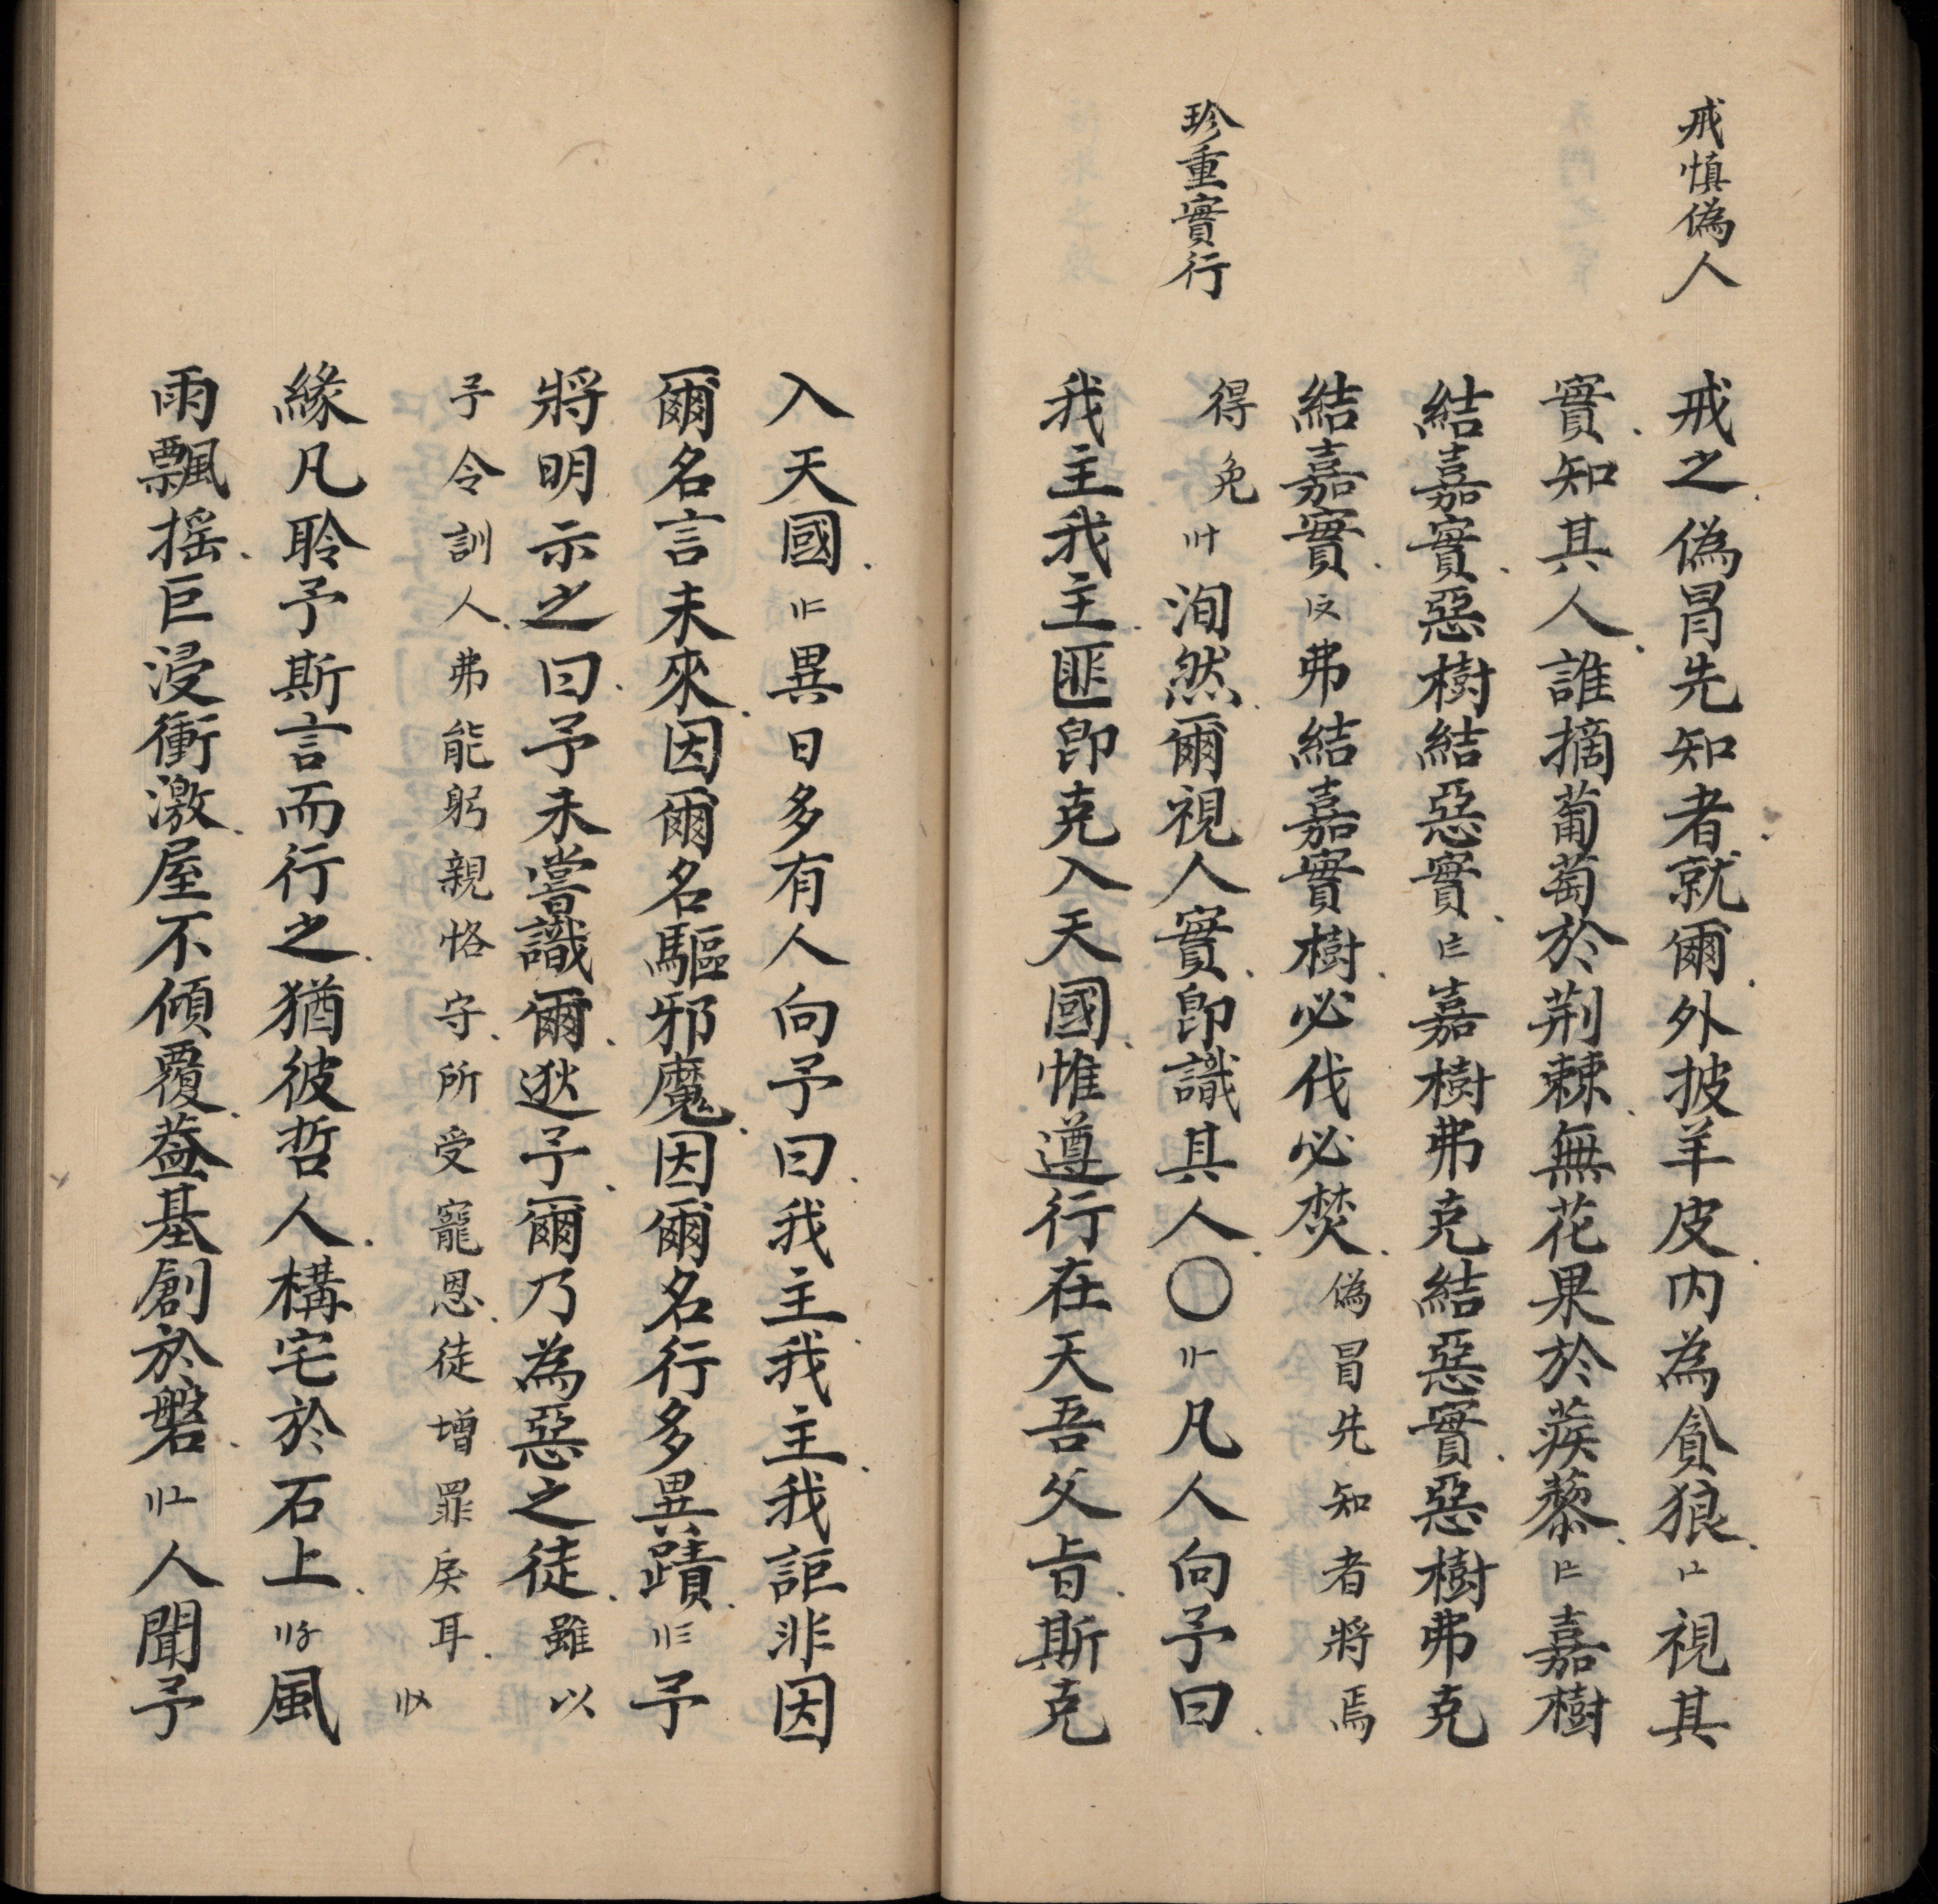 戒慎偽人
戒之偽冒先知者就爾外披羊皮内為貪狼〨視其
實知其人誰摘葡萄於荆棘無花果於蒺藜嘉樹
結嘉實惡樹結惡實嘉樹弗克結惡實惡樹弗克
結嘉實弗結嘉實樹必伐必焚偽冒先知者將焉
珍重實行
得免洵然爾視人實即識其人〇凡人向予曰
我主我主匪即克入天國惟遵行在天吾父旨斯克
入天國異日多有人向予曰我主我主我詎非因
爾名言未來因爾名驅邪魔因爾名行多異蹟予
將明示之曰予未嘗識爾逖予爾乃為惡之徒雖以
予令訓人弗能躬親恪守所受寵恩徒增罪戾耳
緣凡聆予斯言而行之猶彼哲人構宅於石上風
雨飄搖巨浸衝激屋不傾覆葢基創於磐人聞予